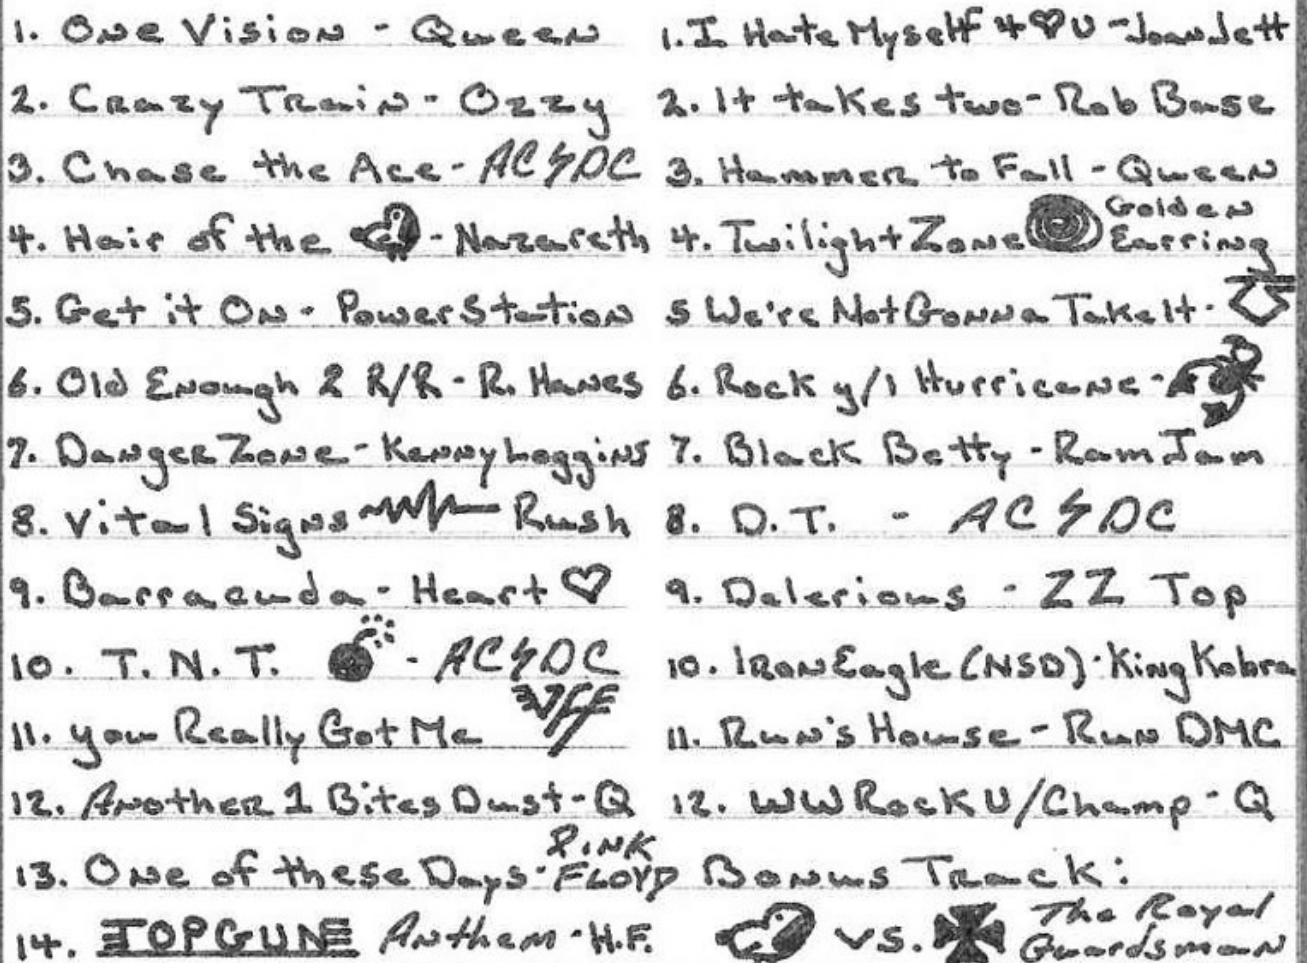 1. One Vision - Queen
2. Crazy Train - Ozzy
3. Chase the Ace - AC⚡DC
4. Hair of the - Nazareth
5. Get it On - Power Station
6. Old Enough 2 R/R - R. Hanes
7. Danger Zone - Kenny Loggins
8. Vital Signs Rush
9. Barracuda - Heart ♡
10. T.N.T. - AC⚡DC
11. You Really Got Me
12. Another 1 Bites Dust - Q
13. One of these Days - PINK FLOYD
14. TOPGUN Anthem - H.F.
1. I Hate Myself 4 ♡ U - Joan Jett
2. It takes two - Rob Base
3. Hammer to Fall - Queen
4. Twilight Zone Golden Earring
5 We're Not Gonna Take It -
6. Rock y/l Hurricane -
7. Black Betty - Ram Jam
8. D.T. - AC⚡DC
9. Delerious - ZZ Top
10. Iron Eagle (NSD) - King Kobra
11. Run's House - Run DMC
12. WW Rock U/Champ - Q
Bonus Track:
vs. The Royal Guardsman